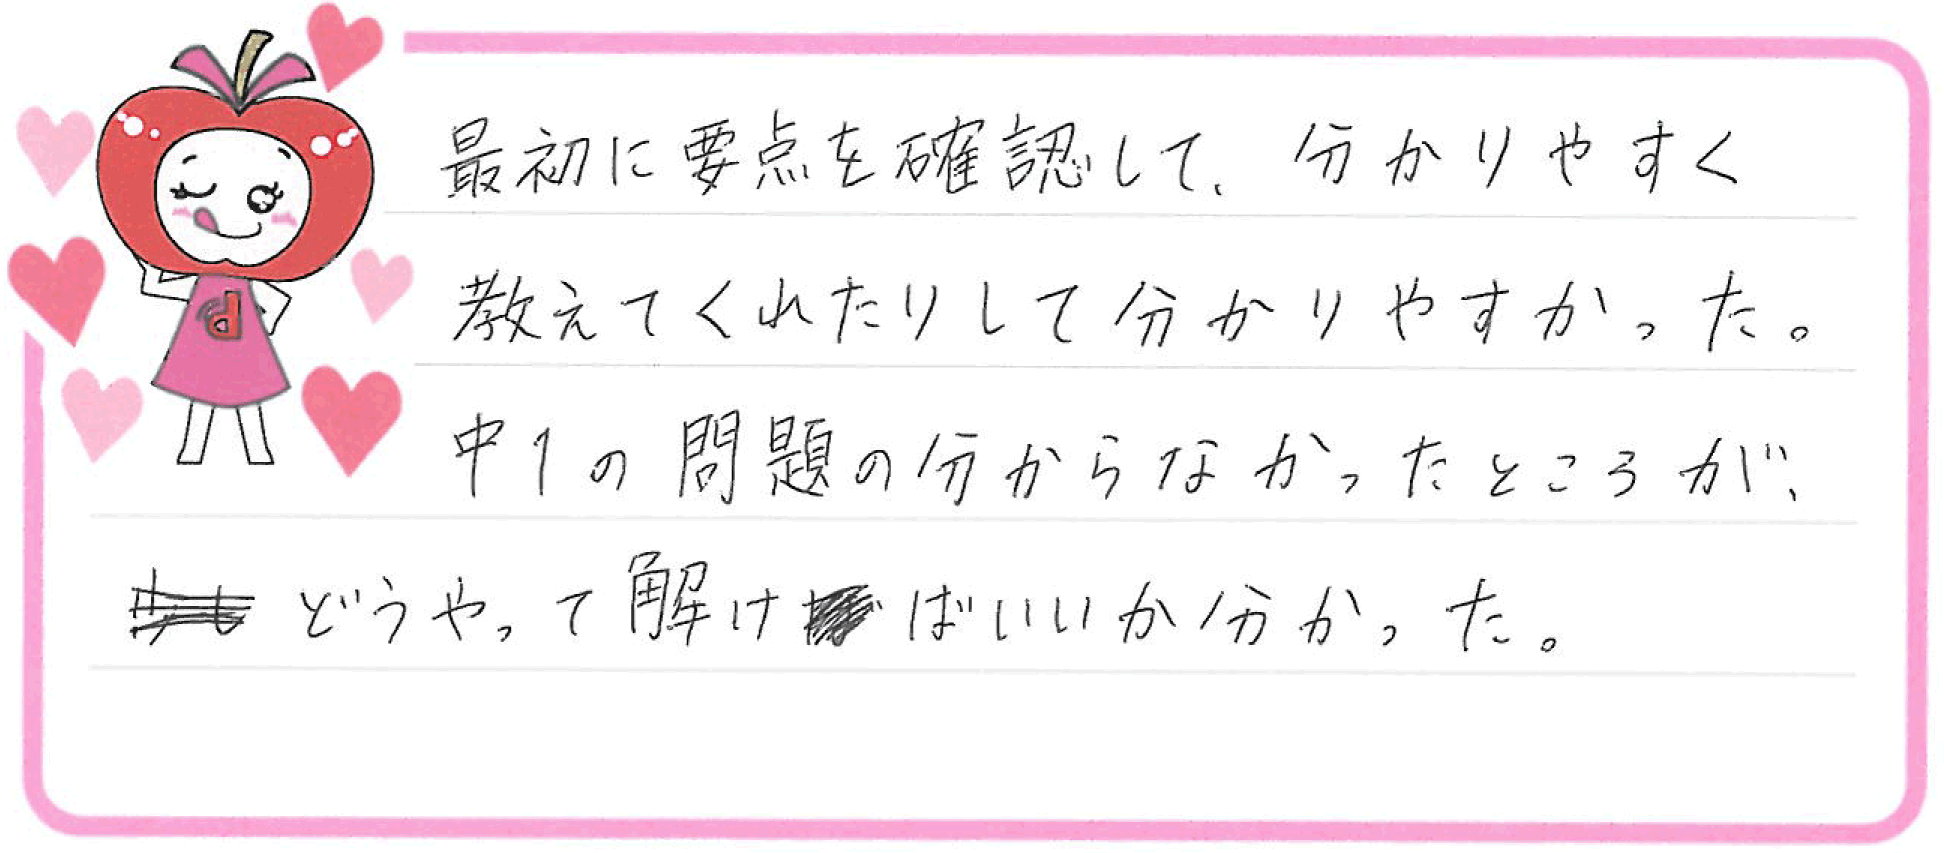 最初に要点を確認して、分かりやすく
教えてくれたりして分かりやすかった。
中1の問題の分からなかったところが、
どうやって解けばいいか分かった。